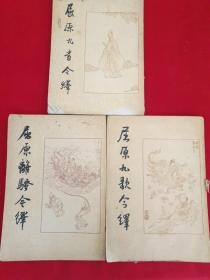 屈原九章今繹
屈原離騷今繹
屈原九歌今繹